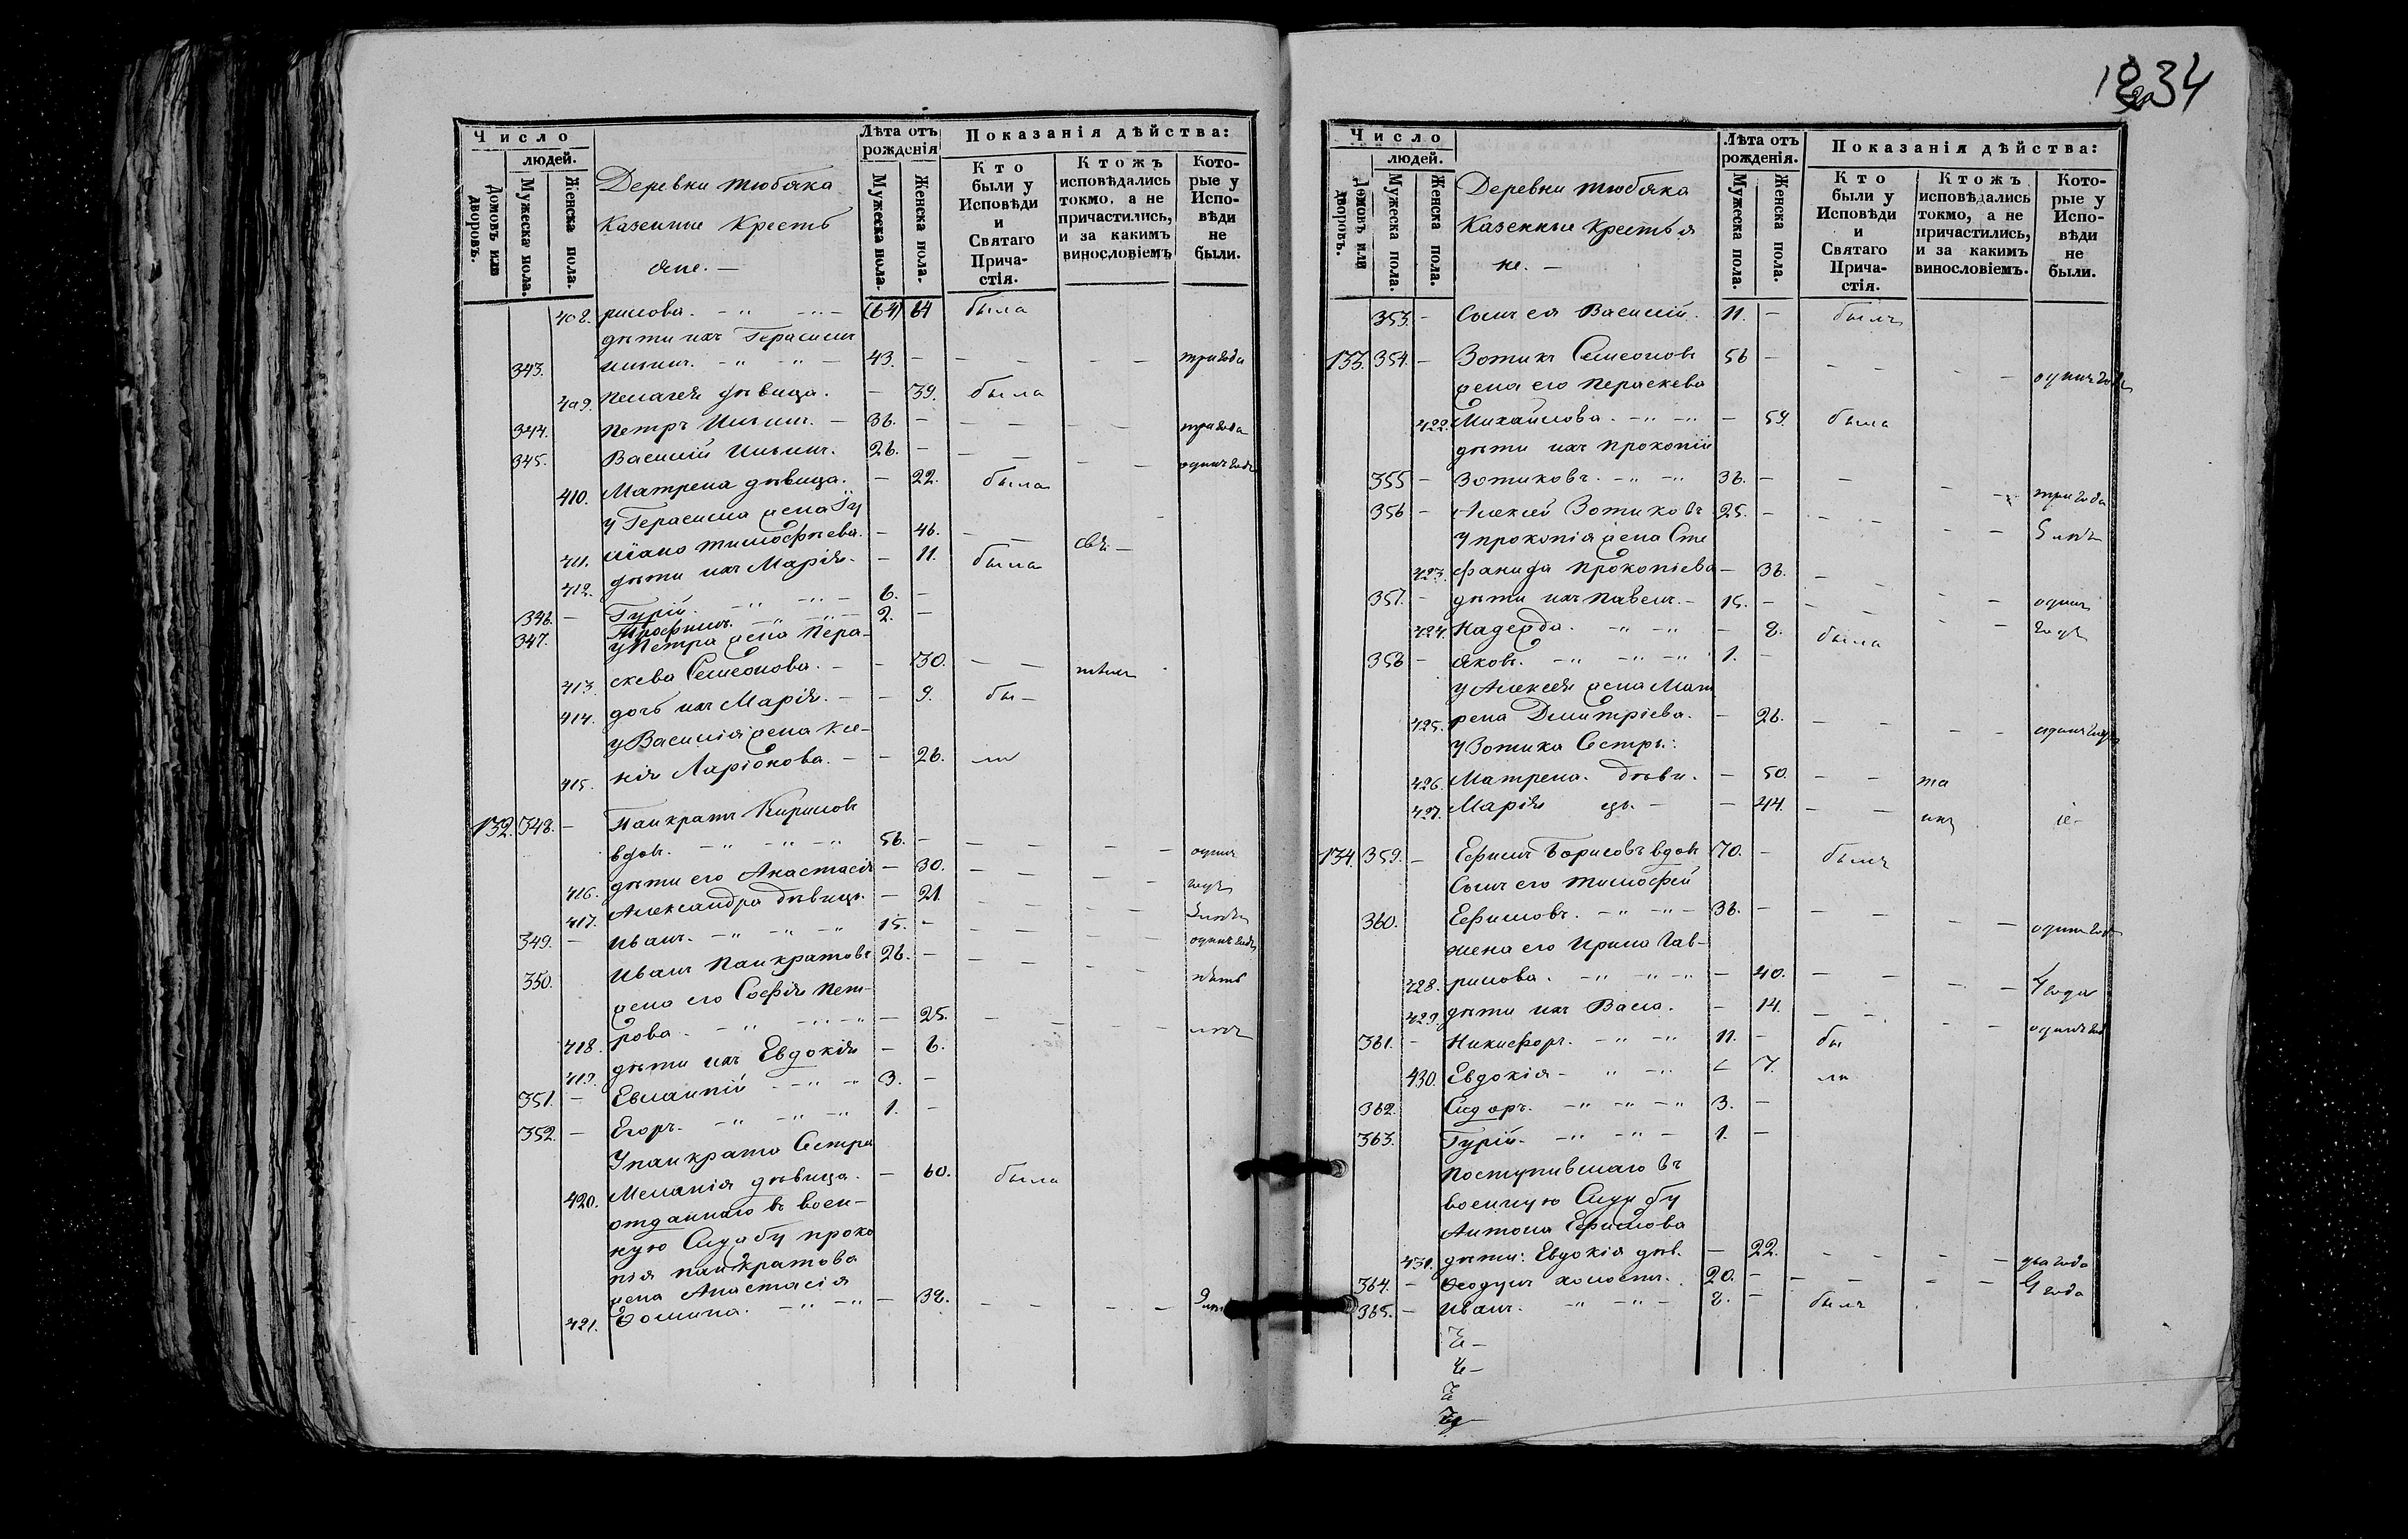 1834
Число
людей.
Домовъ или дворовъ.
Мужеска пола.
Женска пола.
Деревни тюбяка
Казенные Кресть
яне. —
Лѣта отъ
рожденія
Мужеска пола.
Женска пола.
Показанія дѣйства:
Кто
были у
Исповѣди
и
Святаго
Прича-
стія.
Ктожъ
исповѣдались
токмо, а не
причастились,
и за какимъ
винословіемъ
Кото-
рые у
Испо-
вѣди
не
были.
408. рилова. — „ — „ — (64) 64 была
дѣти ихъ Герасимъ
343. Ильинъ. — „ — „ — 43. — — — — — три года
409. Пелагея дѣвица. — 39. была
344. Петръ Ильинъ. — 36. — — — — — три года
345. Василій Ильинъ. 26. — — — — — одинъ годъ
410. Матрена дѣвица. — 22. была
у Герасима жена Іу
411. ліана тимофѣева. — 46. — —
412. дѣти ихъ Марія. — 11. была
346. — Гурій. — „ — „ — 6. —
347. Трофимъ. — „ — „ — 2. —
у Петра жена Пера-
413. скева Семенова. — — 30. — —
414. дочь ихъ Марія. — — 9. бы —
у Василія жена Ксе-
415. нія Ларіонова. — — 26. ли
132. 348. — Панкратъ Кириловъ
вдов. — „ — „ — „ 56. — — — — — одинъ
416. дѣти его Анастасія — 30. — — — — годъ
417. Александра дѣвица. — 21. — — — — 5 лѣтъ
349. — Иванъ. — „ — „ — „ 15. — — — — — одинъ годъ
350. Иванъ Панкратовъ 26. — — — — — пять
жена его Софія Пет-
418. рова — „ — „ — „ — 25. — — — — лѣтъ
419. дѣти ихъ Евдокія — 6.
351. — Евлампій — „ — „ 3. —
352. — Егоръ. — „ — „ — „ 1. —
У панкрата Сестра
420. Меланія дѣвица. — 60. была
отданнаго въ воен-
ную Службу проко
пія панкратова
жена Анастасія
421. Фомина. — „ — „ — 38. — — — —
Число
людей.
Домовъ или дворовъ.
Мужеска пола.
Женска пола.
Деревни тюбяка
Казенные крестья
не. —
Лѣта отъ
рожденія.
Мужеска пола.
Женска пола.
Показанія дѣйства:
Кто
были у
Исповѣди
и
Святаго
Прича-
стія.
Ктожъ
исповѣдались
токмо, а не
причастились,
и за какимъ
винословіемъ.
Кото-
рые у
Испо-
вѣди
не
были.
353. — Сынъ ея Василій. 11. — былъ
133. 354. — Зотикъ Семеоновъ 56 — — — — — одинъ годъ
жена его Пераскева
422. Михайлова. — „ — „ — 59. была
дѣти ихъ прокопій
355 — Зотиковъ. — „ — „ 36. — — — — три года
356 — Алексей Зотиковъ 25. — — — — — 5 лѣтъ
У прокопія жена Сте
423. фанида Прокопіева — 36. — —
357. — дѣти ихъ Павелъ. — 15. — — — — — одинъ
424. Надежда. — „ — „ — 8. была — — годъ
358 — Яковъ. — „ — „ — „ 1. —
У Алексея жена Мат
425. рена Дмитріева. — 26. — — — — одинъ годъ
У Зотика Сестры:
426. Матрена. дѣви. — 50. — —
427. Марія цы. — — 44. — —
134. 359. — Ефимъ Борисовъ вдов 70. — былъ
Сынъ его тимофей
360. Ефимовъ. — „ — „ — 36. — — — — одинъ годъ
жена его Ирина Гав-
428. рилова. — „ — „ — „ — 40. — — — — 4 года
429. дѣти ихъ Васа. — 14. — — — — одинъ годъ
361. — Никифоръ. — „ — „ 11. — бы
430. Евдокія — „ — „ — 7. ли
362. Сидоръ. — „ — „ — „ 3. —
363. Гурій. — „ — „ — 1. —
Поступившаго въ
военную Службу
Антона Ефимова
431. дѣти: Евдокія дѣв. — 22. — — — — два года
364. — Феодулъ холостъ. 20. — — — — — 4 года
365. — Иванъ. — „ — „ — 8. — былъ